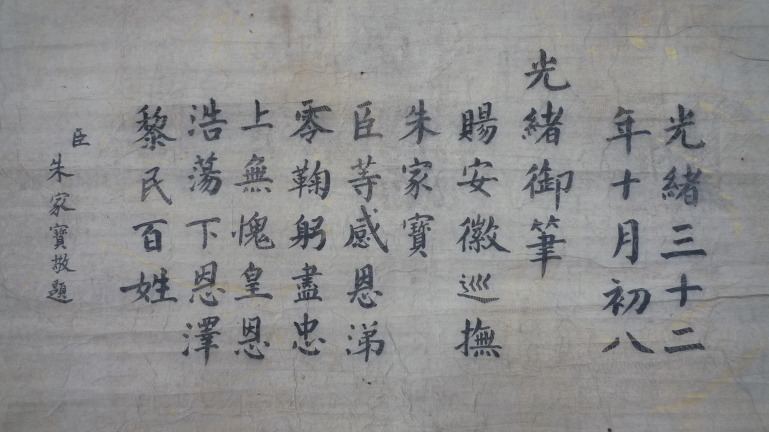 光緒三十二
年十月初八
光緒御筆
賜安徽巡撫
朱家寶
臣等感恩涕
零鞠躬盡忠
上無愧皇恩
浩蕩下恩澤
黎民百姓
臣
朱家寶敬題